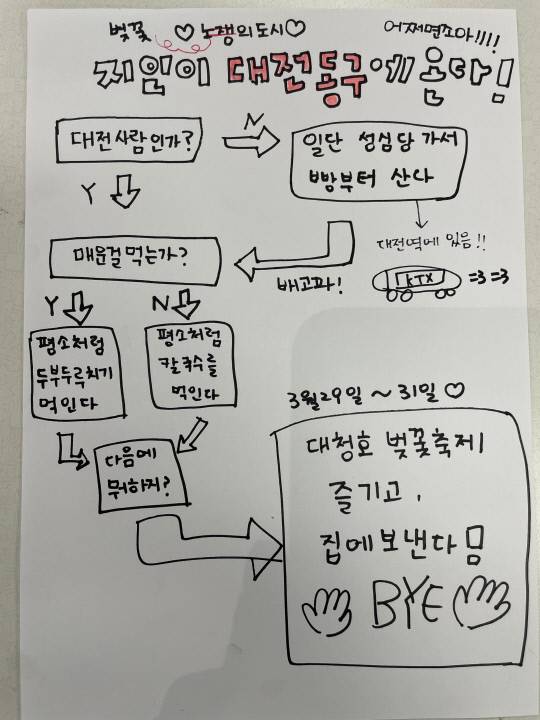 벚꽃 ♡ 노잼의도시♡
어쩌면조아!!!!
지인이 대전동구에 온다!
대전사람인가?
N
일단 성심당 가서
빵부터 산다
Y
대전역에 있음!!
KTX =3 =3
배고파!
매운걸먹는가?
Y
N
평소처럼
두부두루치기
먹인다
평소처럼
칼국수를
먹인다
다음에
뭐하지?
3월29일 ~ 31일 ♡
대청호 벚꽃축제
즐기고,
집에보낸다!
BYE